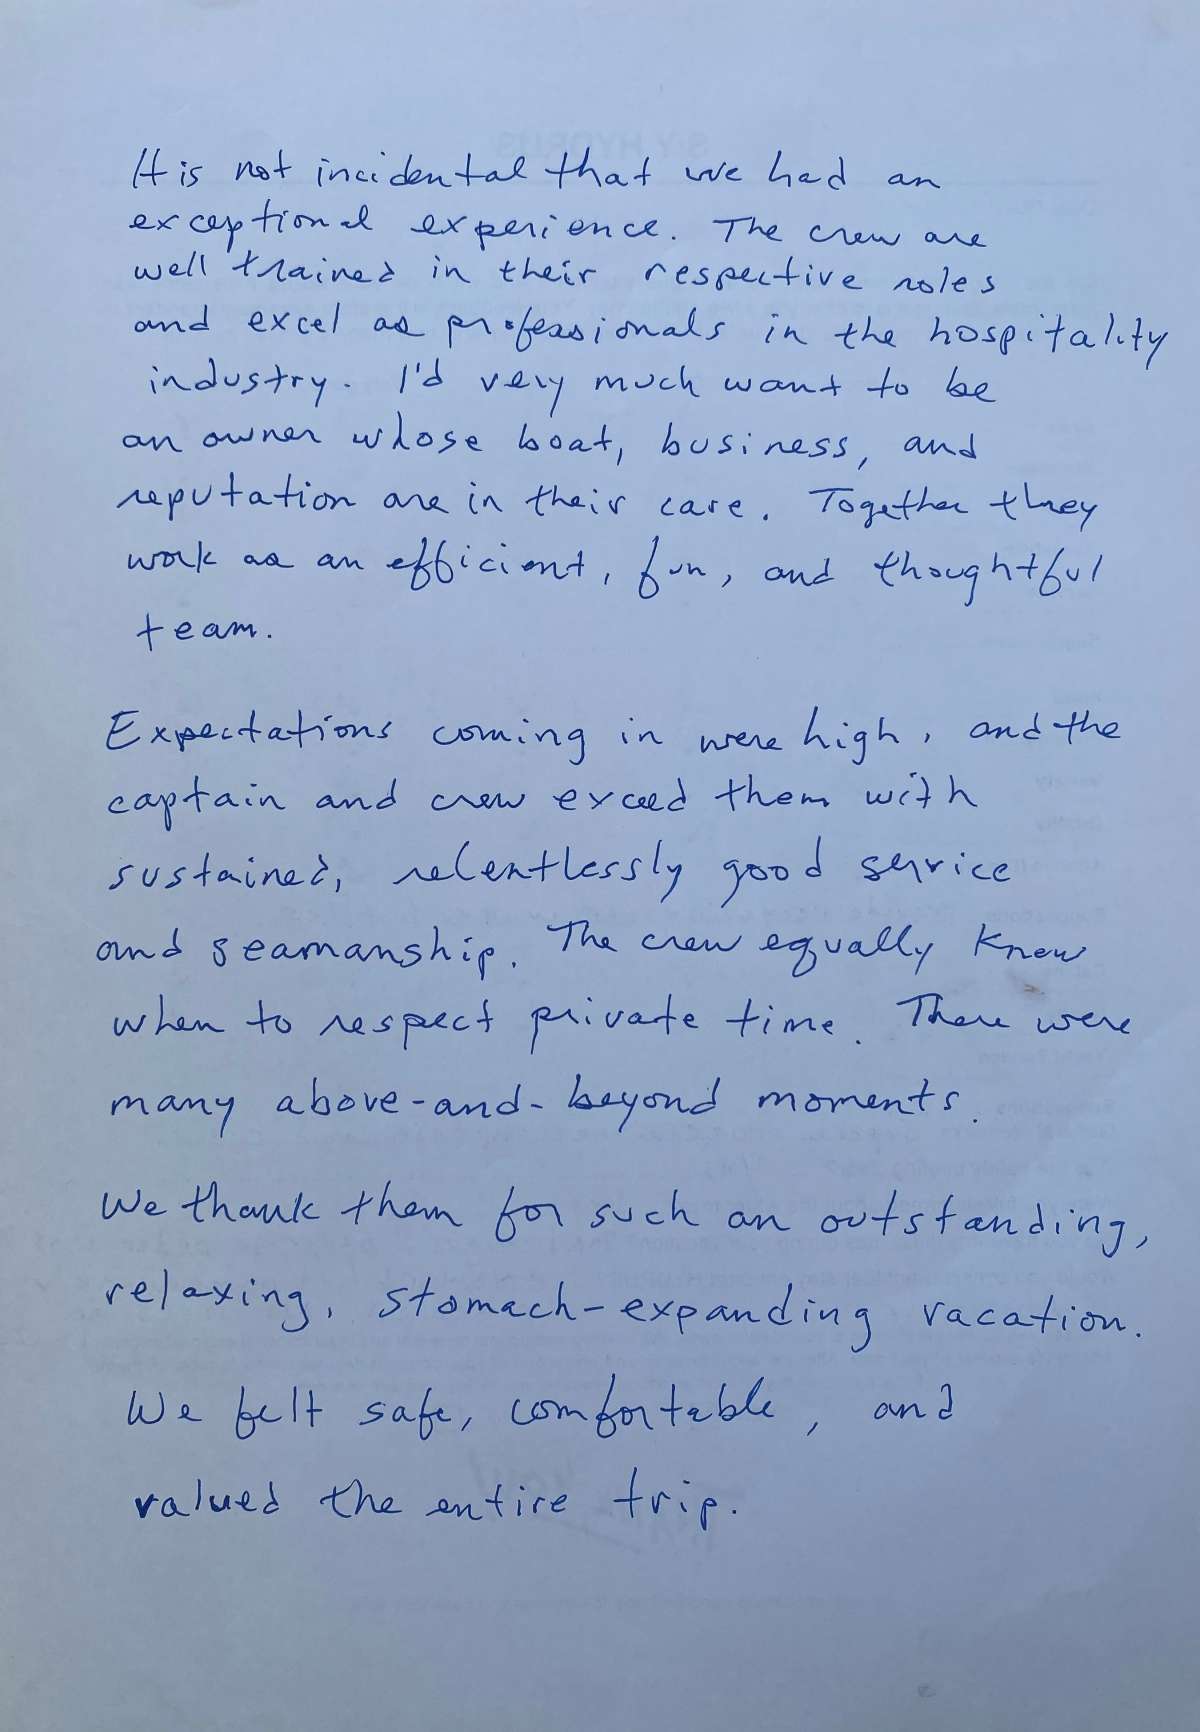 It is not incidental that we had an
exceptional experience. The crew are
well trained in their respective roles
and excel as professionals in the hospitality
industry. I'd very much want to be
an owner whose boat, business, and
reputation are in their care. Together they
work as an efficient, fun, and thoughtful
team.
Expectations coming in were high, and the
captain and crew exceed them with
sustained, relentlessly good service
and seamanship. The crew equally knew
when to respect private time. There were
many above-and-beyond moments.
We thank them for such an outstanding,
relaxing, stomach-expanding vacation.
We felt safe, comfortable, and
valued the entire trip.